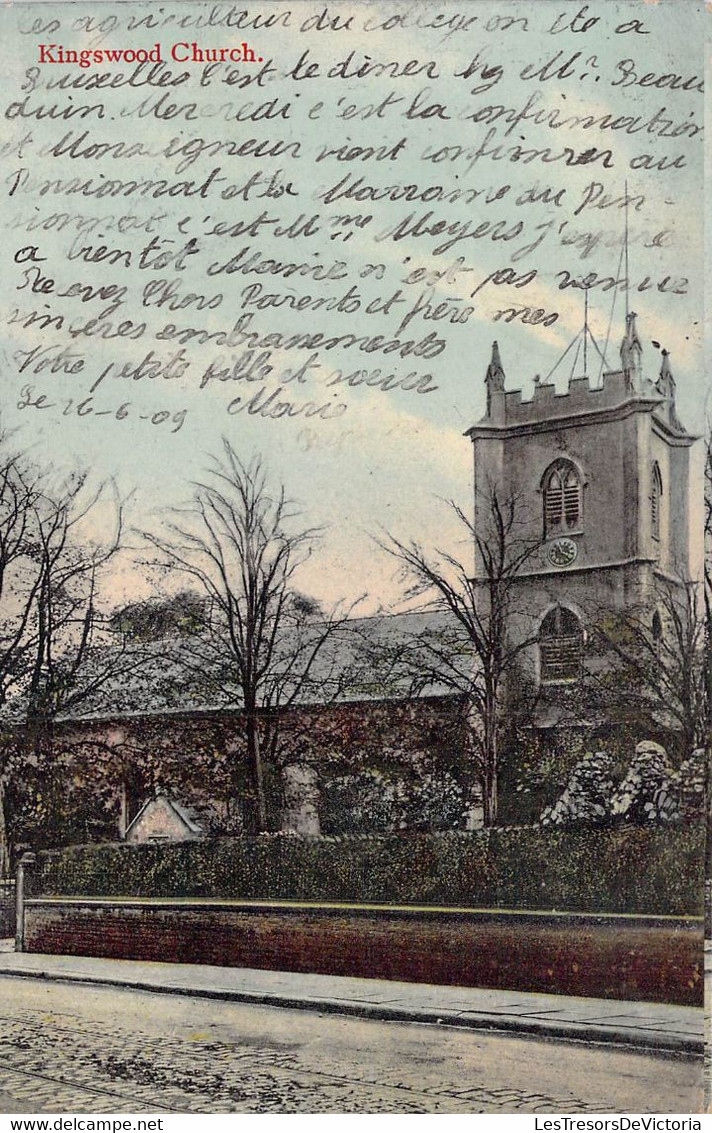 les agriculteur du collège on ete a
Kingswood Church.
Bruxelles c'est le diner hg Mr. Beau
duin Mercredi c'est la confirmation
et Monseigneur vient confirmer au
Pensionnat et la Marraine du Pen-
sionnat c'est Mme Meyers j'espère
a bientôt Mamie n'est pas venue
Recevez Chers Parents et frère mes
sincères embrassements
Votre petite fille et sœur
Le 16-6-09 Marie
LesTresorsDeVictoria